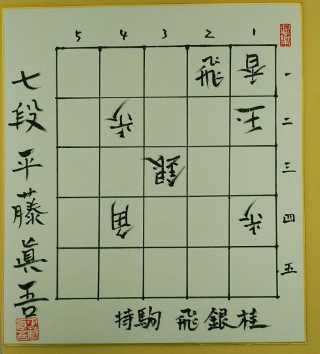 5 4 3 2 1
飛 香 一
歩 玉 二
銀 三
角 歩 四
五
七段 平藤眞吾
持駒 飛銀桂